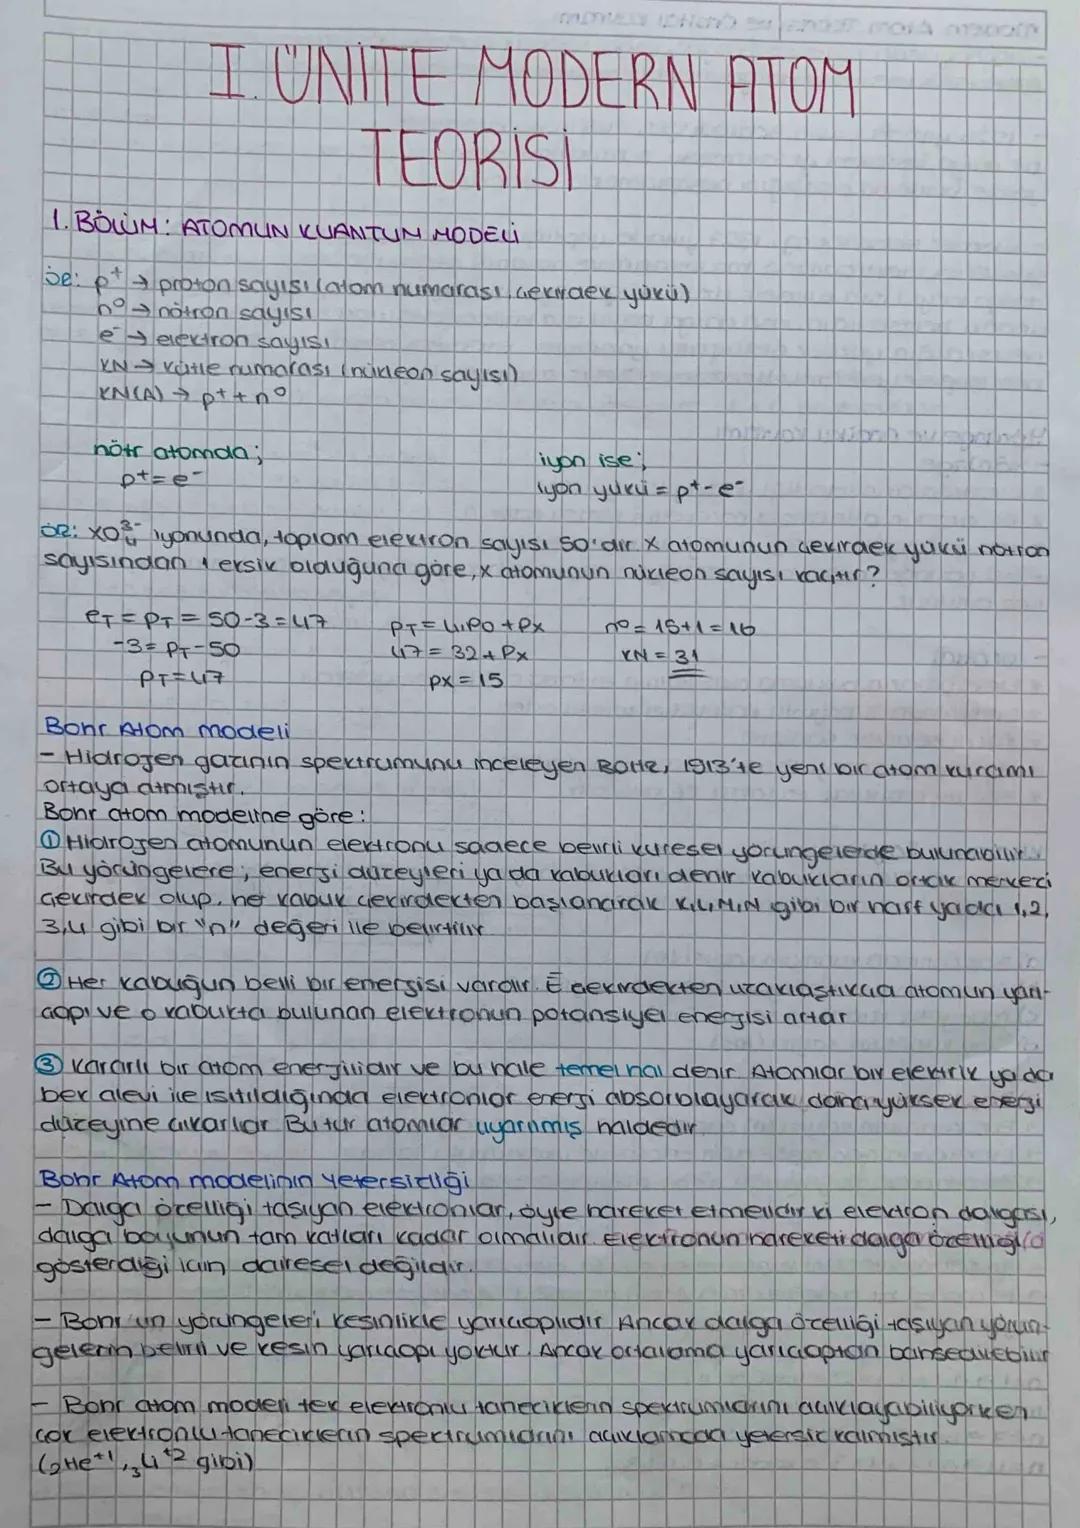 I. ÜNİTE MODERN ATOM
TEORİSİ
1. BÖLÜM: ATOMUN KUANTUM MODELİ
p⁺ → proton sayısı (atom numarası, çekirdek yükü)
n⁰ → nötron sayısı
e⁻ → elektron sayısı
KN → kütle numarası (nükleon sayısı)
KN(A) → p⁺ + n⁰
nötr atomda;
p⁺ = e⁻
iyon ise;
iyon yükü = p⁺ - e⁻
ÖR: XO₄³⁻ iyonunda, toplam elektron sayısı 50'dir. X atomunun çekirdek yükü nötron
sayısından 1 eksik olduğuna göre, X atomunun nükleon sayısı kaçtır?
eT = PT = 50-3 = 47
-3 = PT - 50
PT = 47
PT = 4.PO + PX
47 = 32 + PX
PX = 15
n⁰ = 15+1 = 16
KN = 31
Bohr Atom modeli
- Hidrojen gazının spektrumunu inceleyen Bohr, 1913'te yeni bir atom kuramı
ortaya atmıştır.
Bohr atom modeline göre:
① Hidrojen atomunun elektronu sadece belirli küresel yörüngelerde bulunabilir.
Bu yörüngelere; enerji düzeyleri ya da kabukları denir kabukların ortak merkezi
çekirdek olup, her kabuk çekirdekten başlanarak K,L,M,N gibi bir harf yada 1,2,
3,4 gibi bir "n" değeri ile belirtilir
② Her kabuğun belli bir enerjisi vardır. E çekirdekten uzaklaştıkça atomun yarı-
çapı ve o kabukta bulunan elektronun potansiyel enerjisi artar
③ Kararlı bir atom enerjilidir ve bu hale temel hal denir. Atomlar bir elektrik ya da
bek alevi ile ısıtıldığında elektronlar enerji absorblayarak daha yüksek enerji
düzeyine çıkarlar Bu tür atomlar uyarılmış haldedir.
Bohr Atom modelinin Yetersizliği
- Dalga özelliği taşıyan elektronlar, öyle hareket etmelidir ki elektron dalgası,
dalga boyunun tam katları kadar olmalıdır. Elektronun hareketi dalga özelliği
gösterdiği için dairesel değildir.
- Bohr'un yörüngeleri kesinlikle yarıçaplıdır Ancak dalga özelliği taşıyan yörün-
gelerin belirli ve kesin yarıçapı yoktur. Ancak ortalama yarıçaptan bahsedilebilir
- Bohr atom modeli tek elektronlu taneciklerin spektrumlarını açıklayabiliyorken
çok elektronlu taneciklerin spektrumlarını açıklamada yetersiz kalmıştır.
(₂He⁺¹, ₃Li⁺² gibi)